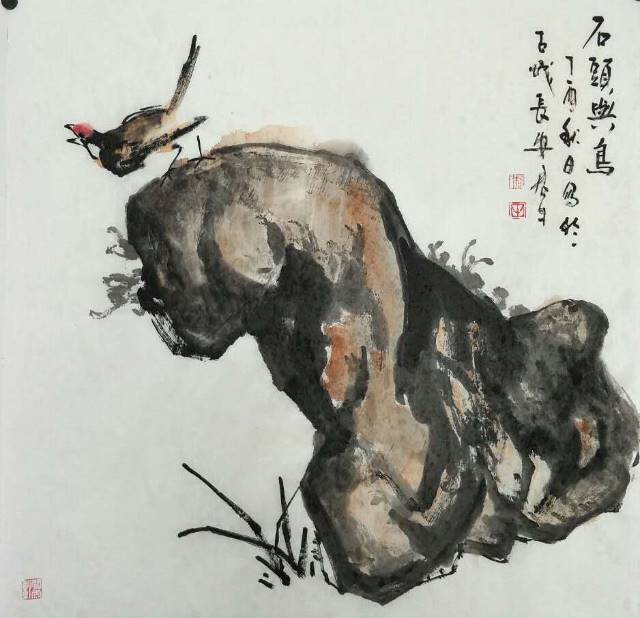 石頭與鳥
丁酉秋日写於
古城長安